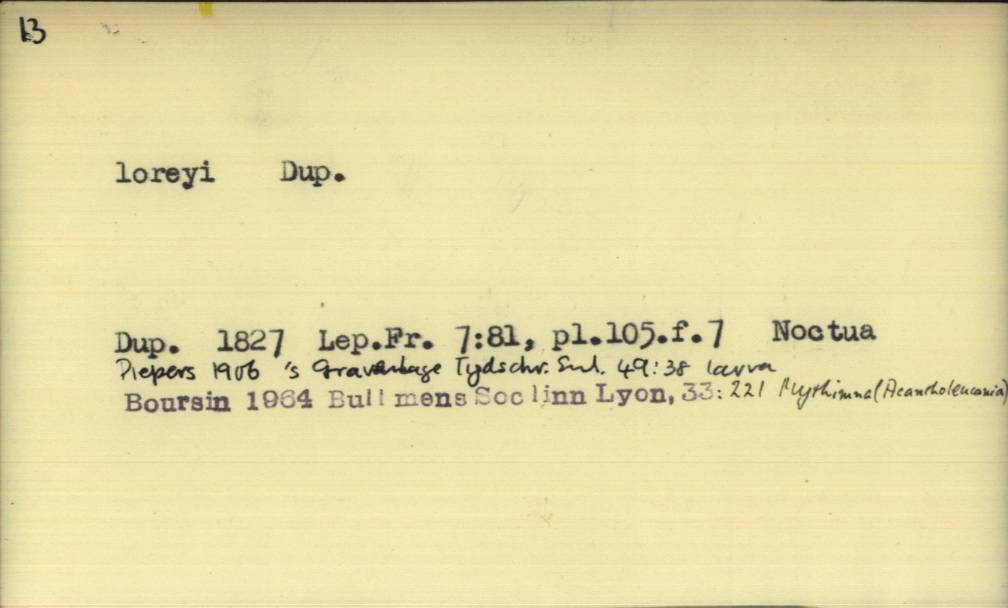 13
loreyi Dup.
Dup. 1827 Lep.Fr. 7:81, pl.105.f.7 Noctua
Piepers 1906 's Gravenhage Tydschr. Ent. 49:38 larva
Boursin 1964 Bull mens Soc linn Lyon, 33:221 Mythimna (Acantholeucania)